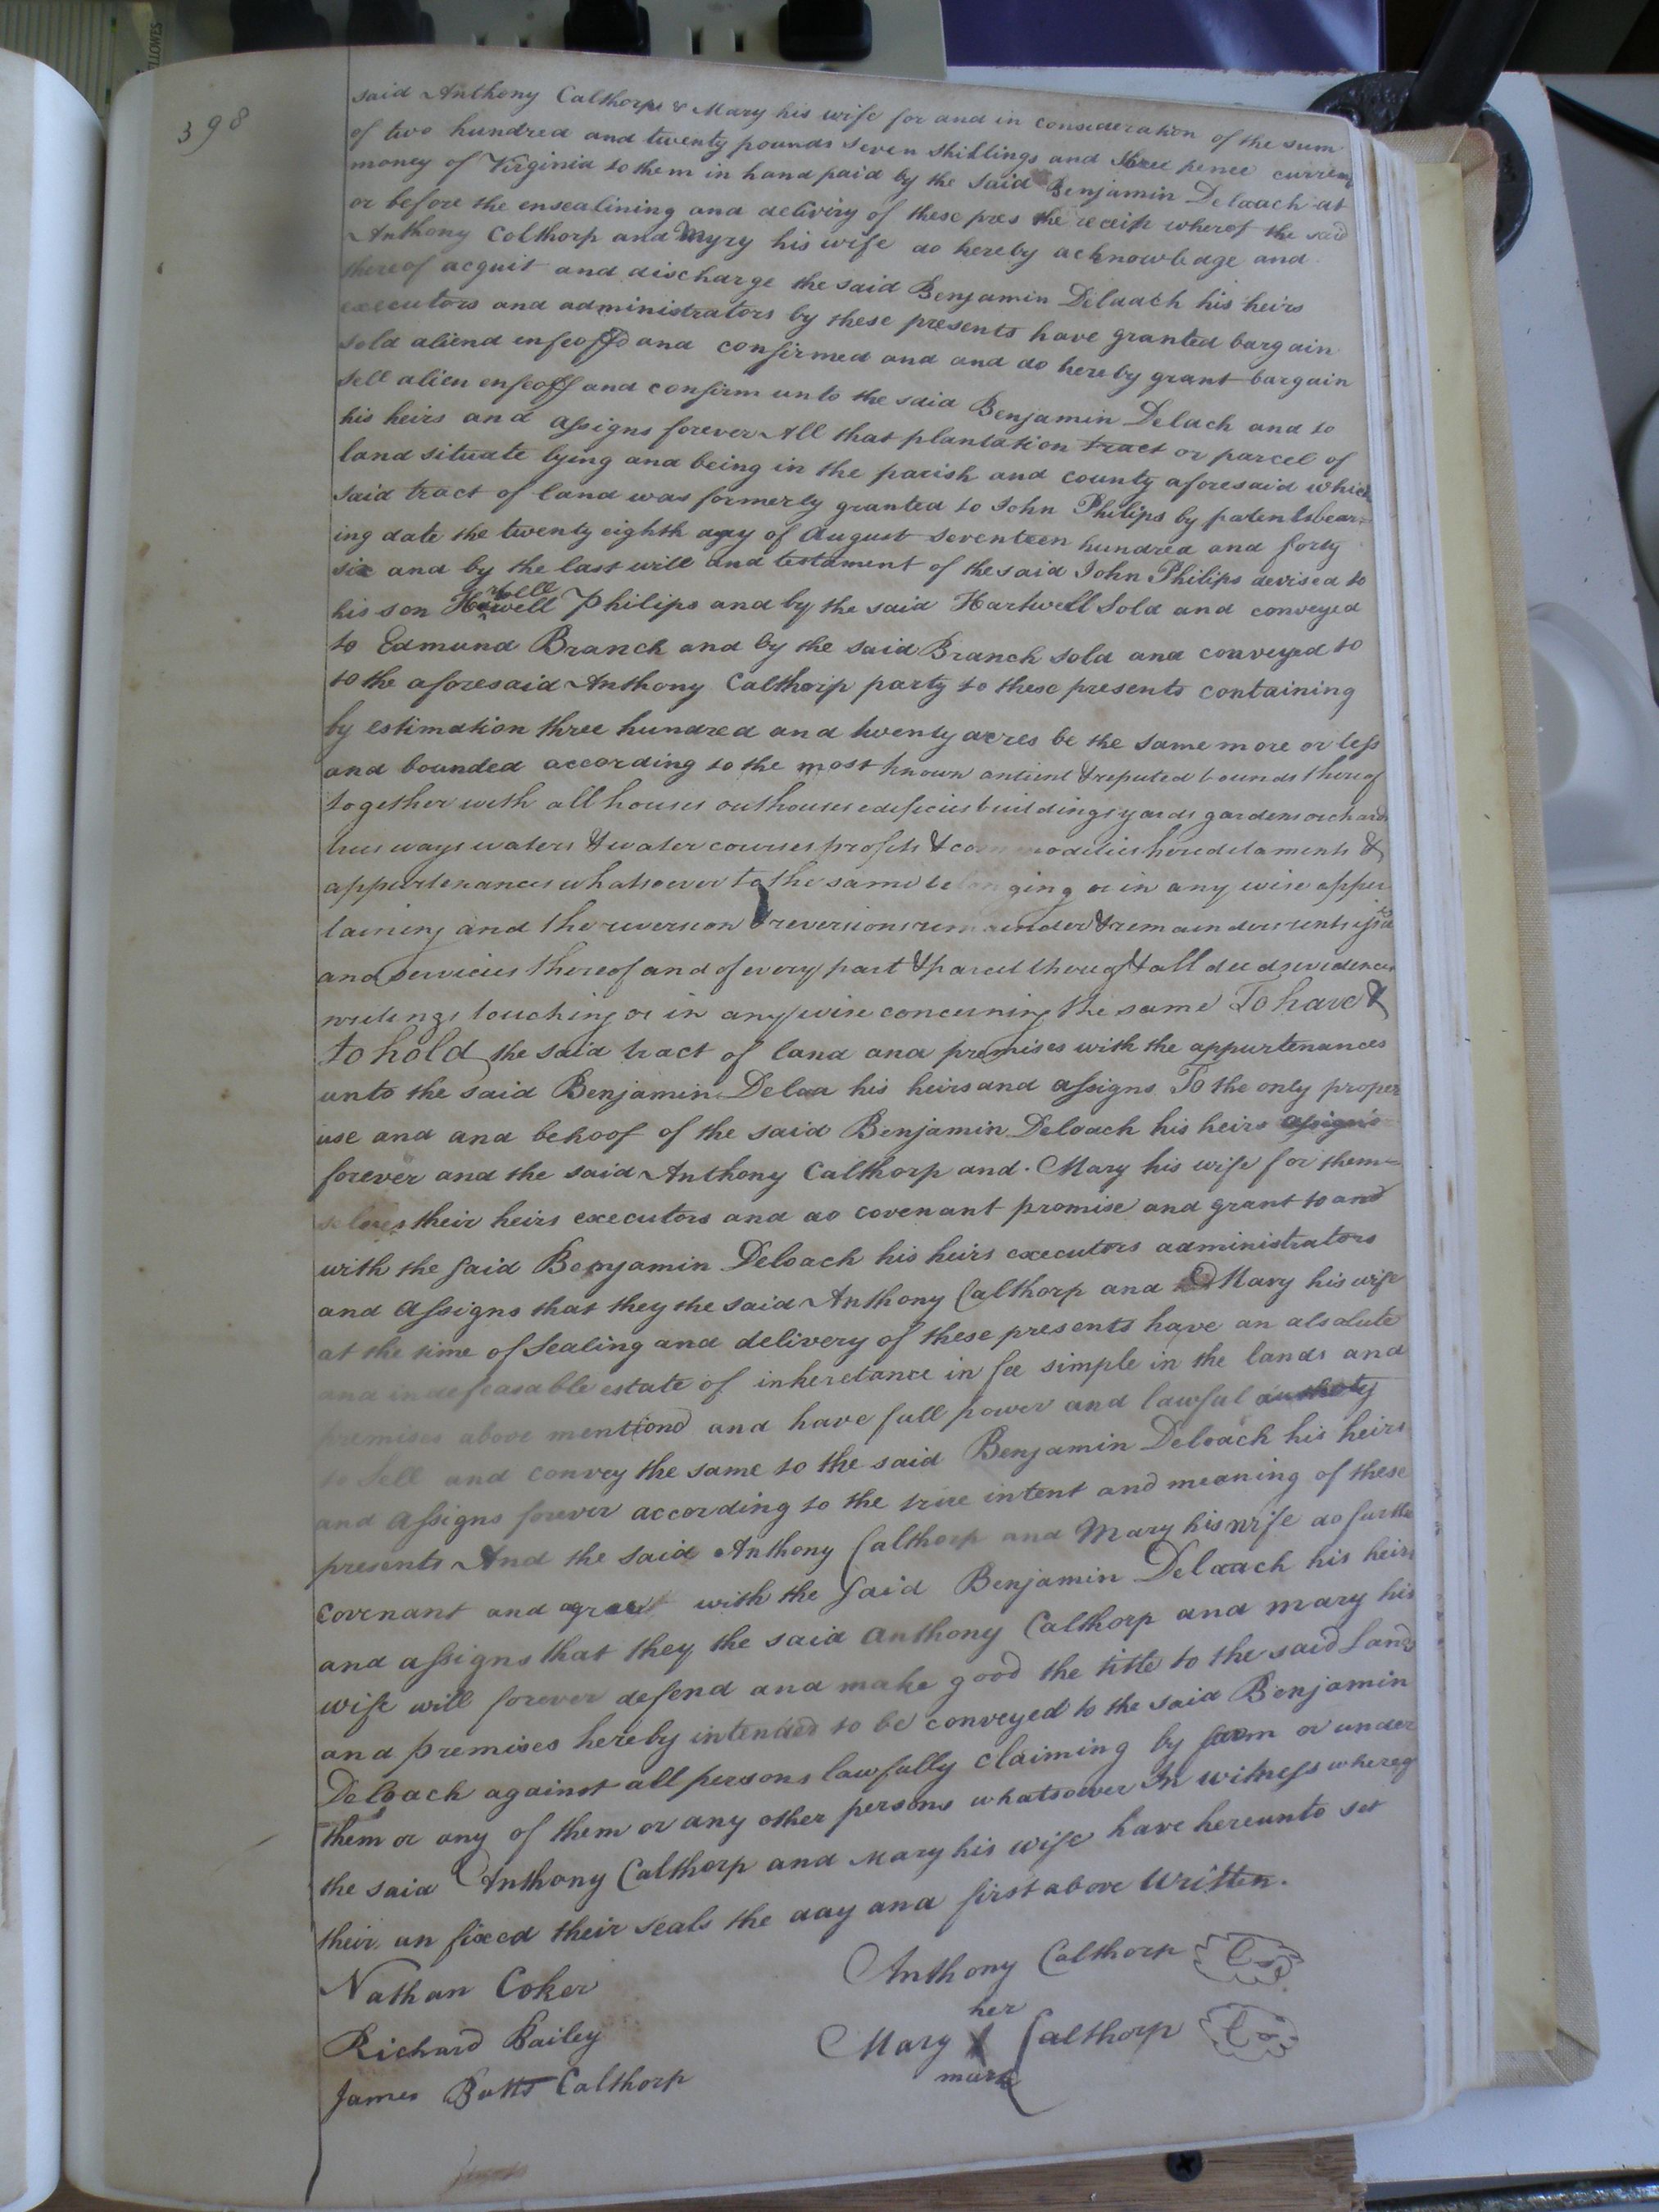 398
said Anthony Calthorp & Mary his wife for and in consideration of the sum
of two hundred and twenty pounds seven shillings and three pence current
money of Virginia to them in hand paid by the said Benjamin Deloach at
or before the ensealining and deliviry of these pres the receipt wherof the said
Anthony Colthorp and Myry his wife do hereby acknowledge and
thereof acquit and discharge the said Benjamin Deloach his heirs
executors and administrators by these presents have granted bargain
sold aliend enfeoffd and confirmed and and do hereby grant bargain
sell alien enfeoff and confirm unto the said Benjamin Delach and to
his heirs and assigns forever All that plantation tract or parcel of
land situate lying and being in the parish and county aforesaid which
said tract of land was formerly granted to John Philips by patents bear=
ing date the twenty eighth day of August seventeen hundred and forty
six and by the last will and testament of the said John Philips devised to
his son Hartwell Philips and by the said Hartwell Sold and conveyed
to Edmund Branch and by the said Branch sold and conveyed to
to the aforesaid Anthony Calthorp party to these presents containing
by estimation three hundred and twenty acres be the same more or less
and bounded according to the most known antient & reputed bounds thereof
together with all houses outhouses edificies buildings yards gardens orchards
trees ways waters & water courses profits & commodities hereditaments &
appurtenances whatsoever to the same belonging or in any wise apper
taining and the reversion & reversions remainder & remainders rents issues
and servicies thereof and of every part & parcel thereof & all deeds evidences
writings touching or in any wise concerning the same To have &
to hold the said tract of land and premises with the appurtenances
unto the said Benjamin Deloa his heirs and assigns To the only proper
use and and behoof of the said Benjamin Deloach his heirs assigns
forever and the said Anthony Calthorp and Mary his wife for them=
selves their heirs executors and do covenant promise and grant to and
with the said Benjamin Deloach his heirs executors administrators
and assigns that they the said Anthony Calthorp and Mary his wife
at the time of Sealing and delivery of these presents have an absolute
and indefeasable estate of inheretance in fee simple in the lands and
premises above mentiond and have full power and lawful authoty
to Sell and convey the same to the said Benjamin Deloach his heirs
and assigns forever according to the true intent and meaning of these
presents And the said Anthony Calthorp and Mary his wife do further
covenant and agree with the said Benjamin Deloach his heirs
and assigns that they the said Anthony Calthorp and mary his
wife will forever defend and make good the title to the said Lands
and premises hereby intended to be conveyed to the said Benjamin
Deloach against all persons lawfully claiming by from or under
them or any of them or any other persons whatsoever In witness whereof
the said Anthony Calthorp and Mary his wife have hereunto set
their an fixed their seals the day and first above Written.
Nathan Coker
Richard Bailey
James Butts Calthorp
Anthony Calthorp Ls
her
Mary X Calthorp Ls
mark